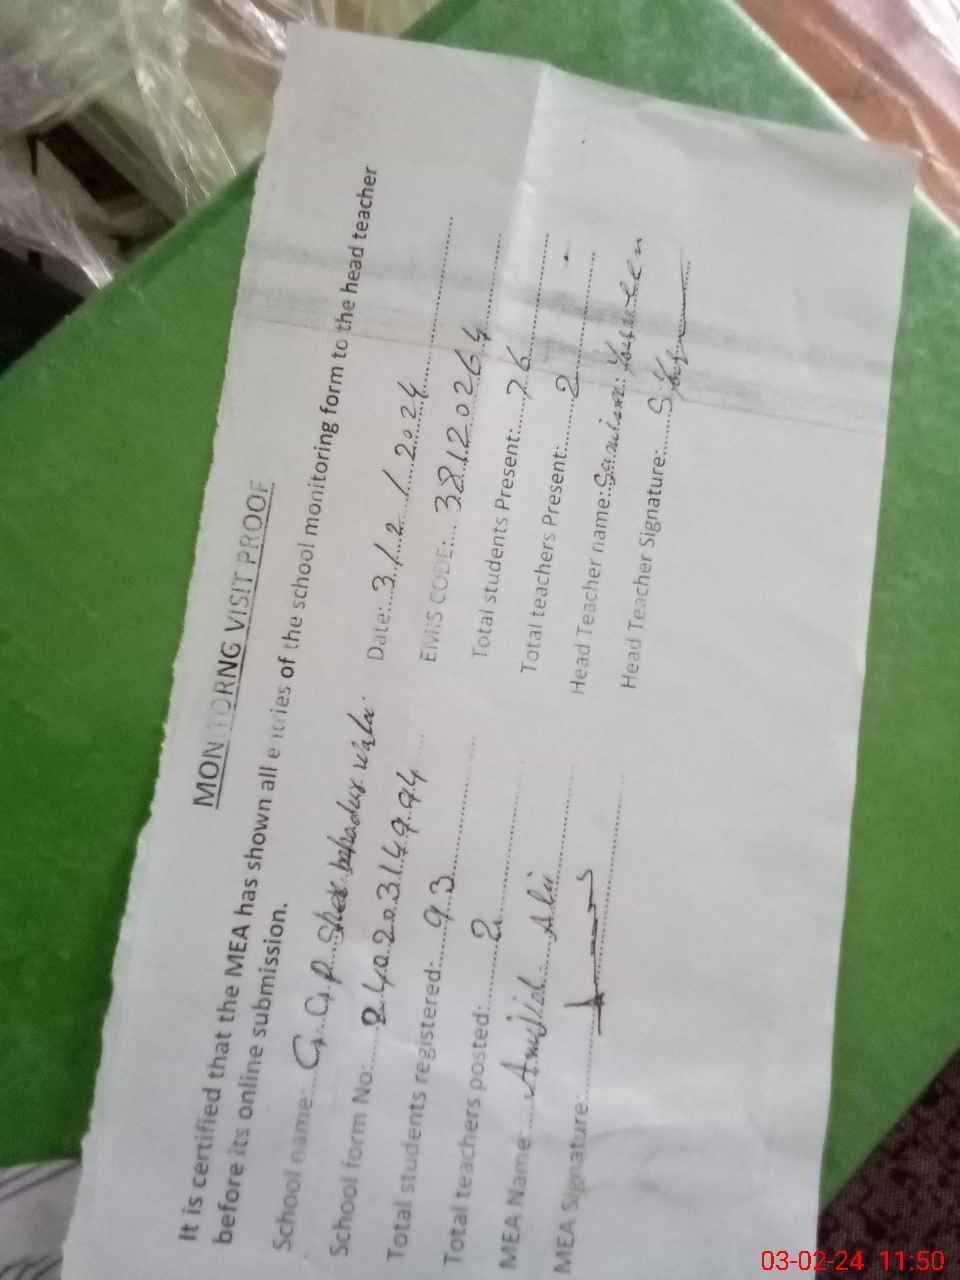 MONITORNG VISIT PROOF
It is certified that the MEA has shown all entries of the school monitoring form to the head teacher
before its online submission.
School name:.... G.G.P.S Sher bahadur wala Date:...3./..2../..2024
School form No:......24020314994 EMIS CODE:...38120264
Total students registered:....93 Total students Present:.....76
Total teachers posted:.......2 Total teachers Present:.......2
MEA Name:...Amjid Ali Head Teacher name: Yasmeen
MEA Signature: Head Teacher Signature:
03-02-24 11:50